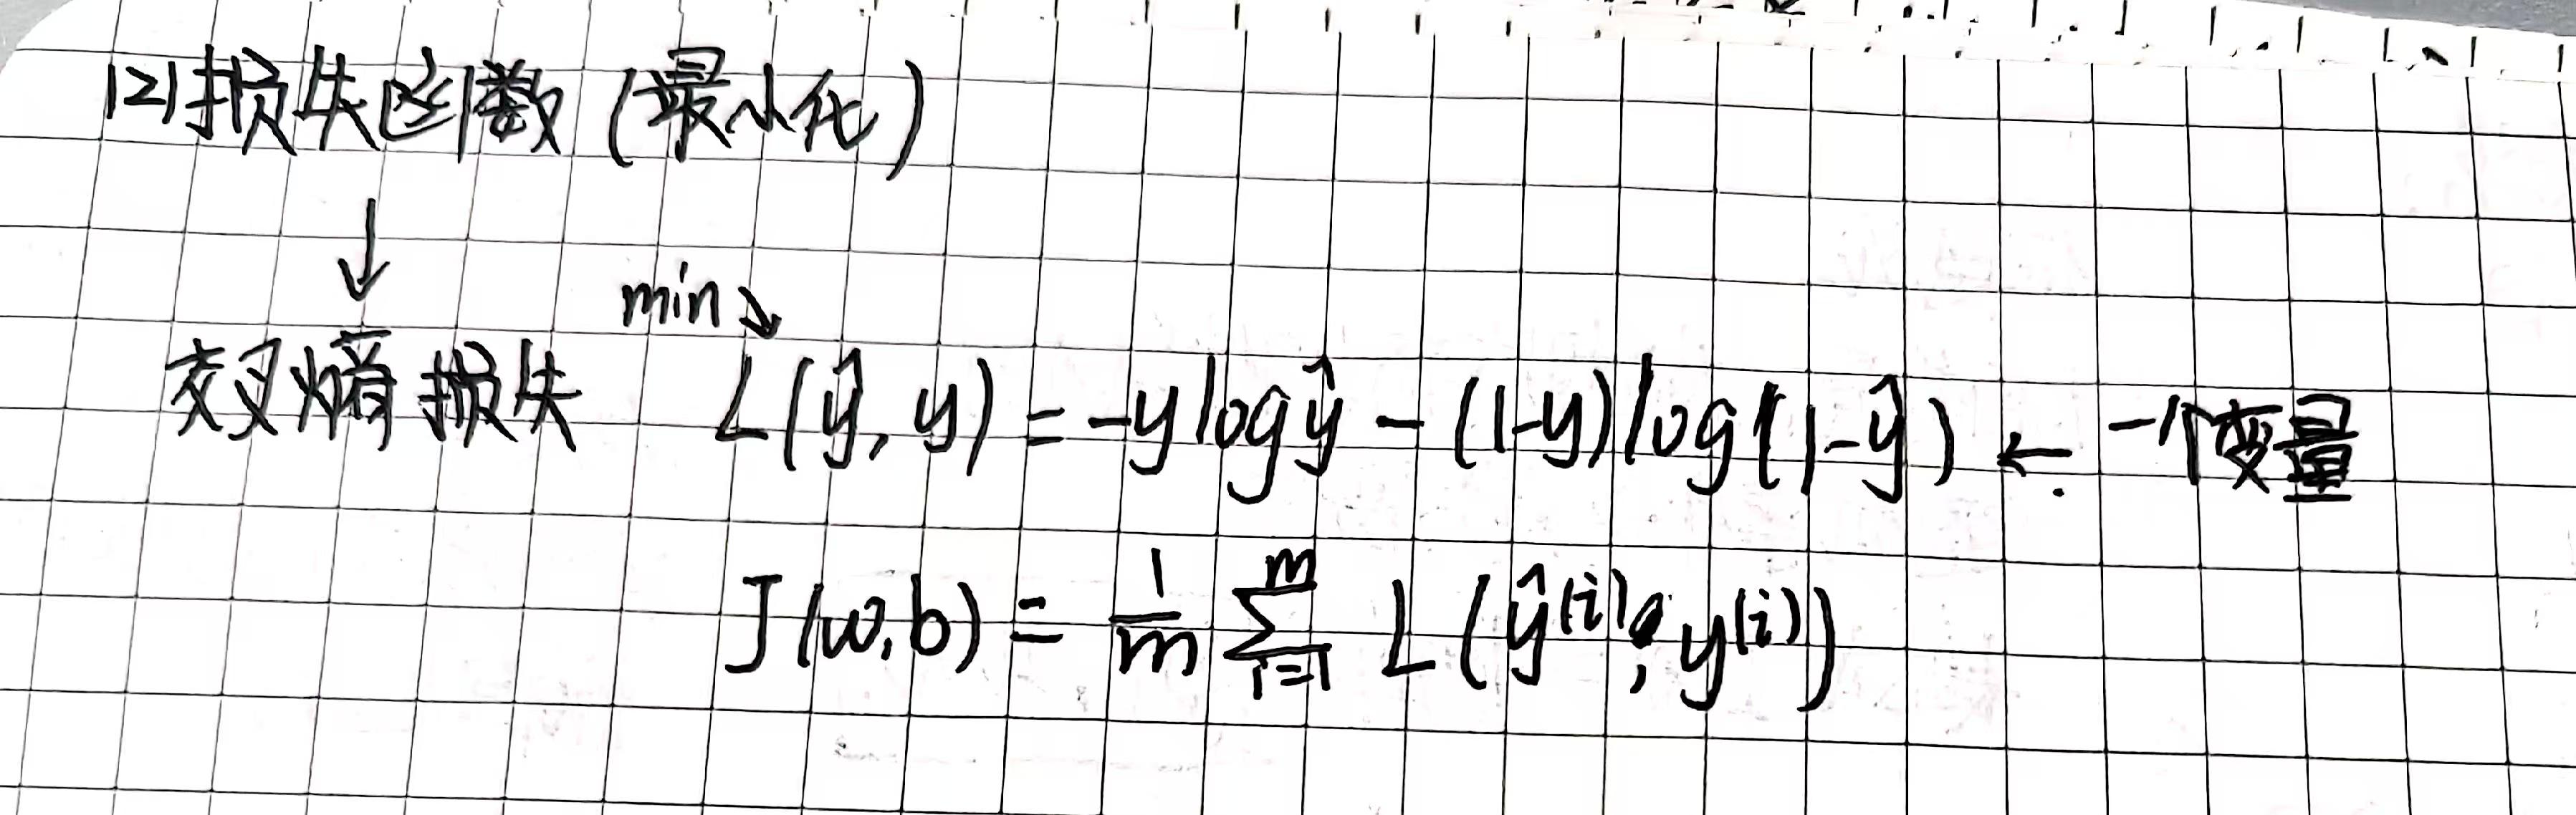 (2)损失函数(最小化)
↓
min↘
交叉熵损失 L(ŷ, y) = -y log ŷ - (1-y) log(1-ŷ) ← 一个变量
J(w,b) = \frac{1}{m} \sum_{i=1}^{m} L(ŷ^{(i)}, y^{(i)})